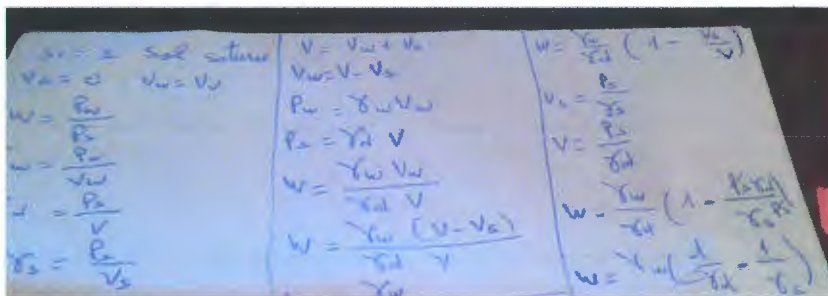 Sr = 1 Sol saturé
Va = 0 Vw = Vv
W = Pw/Ps
γw = Pw/Vw
γd = Ps/V
γs = Ps/Vs
V = Vw + Vs
Vw = V - Vs
Pw = γw Vw
Ps = γd V
W = γw Vw / γd V
W = γw (V - Vs) / γd V
γw
W = γw/γd (1 - Vs/V)
Vs = Ps/γs
V = Ps/γd
W = γw/γd (1 - Ps γd / γs Ps)
W = γw (1/γd - 1/γs)